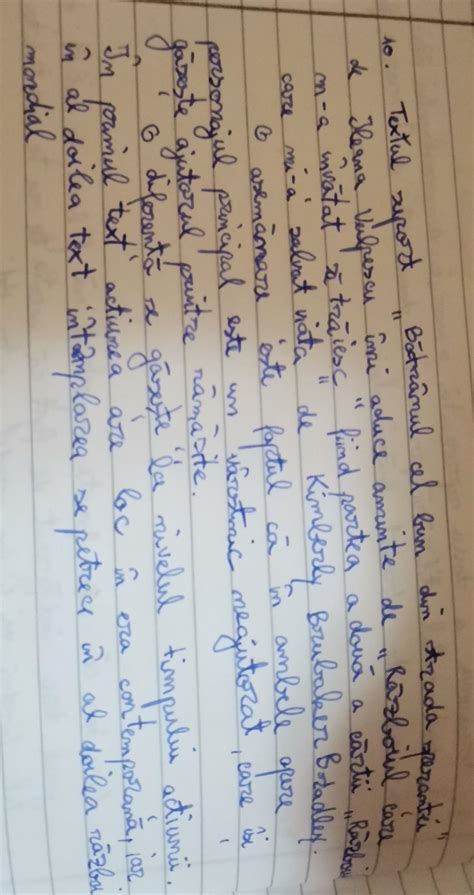 10. Textul suport "Bătrânul cel bun din strada speranței"
de Ileana Vulpescu îmi aduce aminte de "Războiul care
m-a învățat să trăiesc" fiind partea a două a cărții "Război
care mi-a salvat viața de Kimberly Brubaker Bradley.
O asemănare este faptul că în ambele opere
personajul principal este un vârstnic neajutorat, care își
găsește ajutorul printre rămășite.
O diferență se găsește la nivelul timpului acțiunii.
În primul text acțiunea are loc în era contemporană, iar
în al doilea text întâmplarea se petrec în al doilea război
mondial